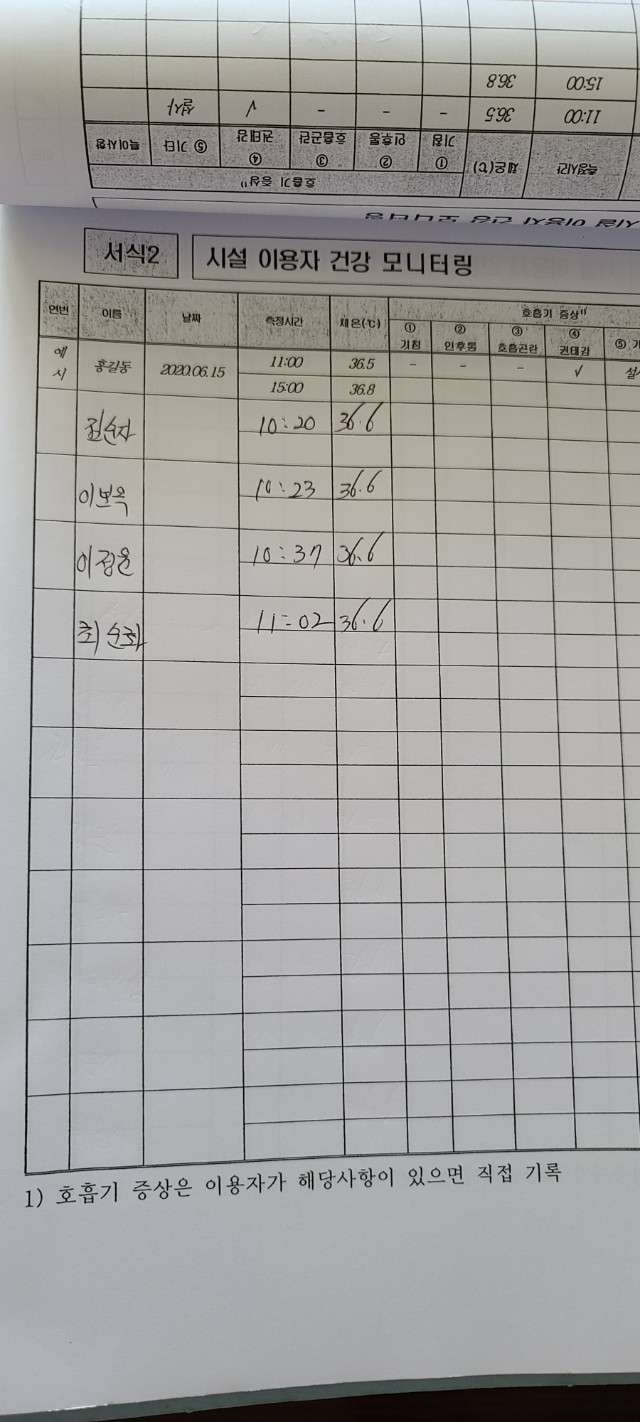 특이사항 ⑤ 기타 ④ 권태감 ③ 호흡곤란 ② 인후통 ① 기침 체온(℃) 측정시간
호흡기 증상¹⁾
설사 √ - - - 36.5 11:00
36.8 15:00
서식2 시설 이용자 건강 모니터링
연번 이름 날짜 측정시간 체온(℃) 호흡기 증상¹⁾
① 기침 ② 인후통 ③ 호흡곤란 ④ 권태감 ⑤ 기
예시 홍길동 2020.06.15 11:00 36.5 - - - √ 설
15:00 36.8
10:20 36.6
이보옥 10:23 36.6
이정윤 10:37 36.6
최순화 11:02 36.6
1) 호흡기 증상은 이용자가 해당사항이 있으면 직접 기록